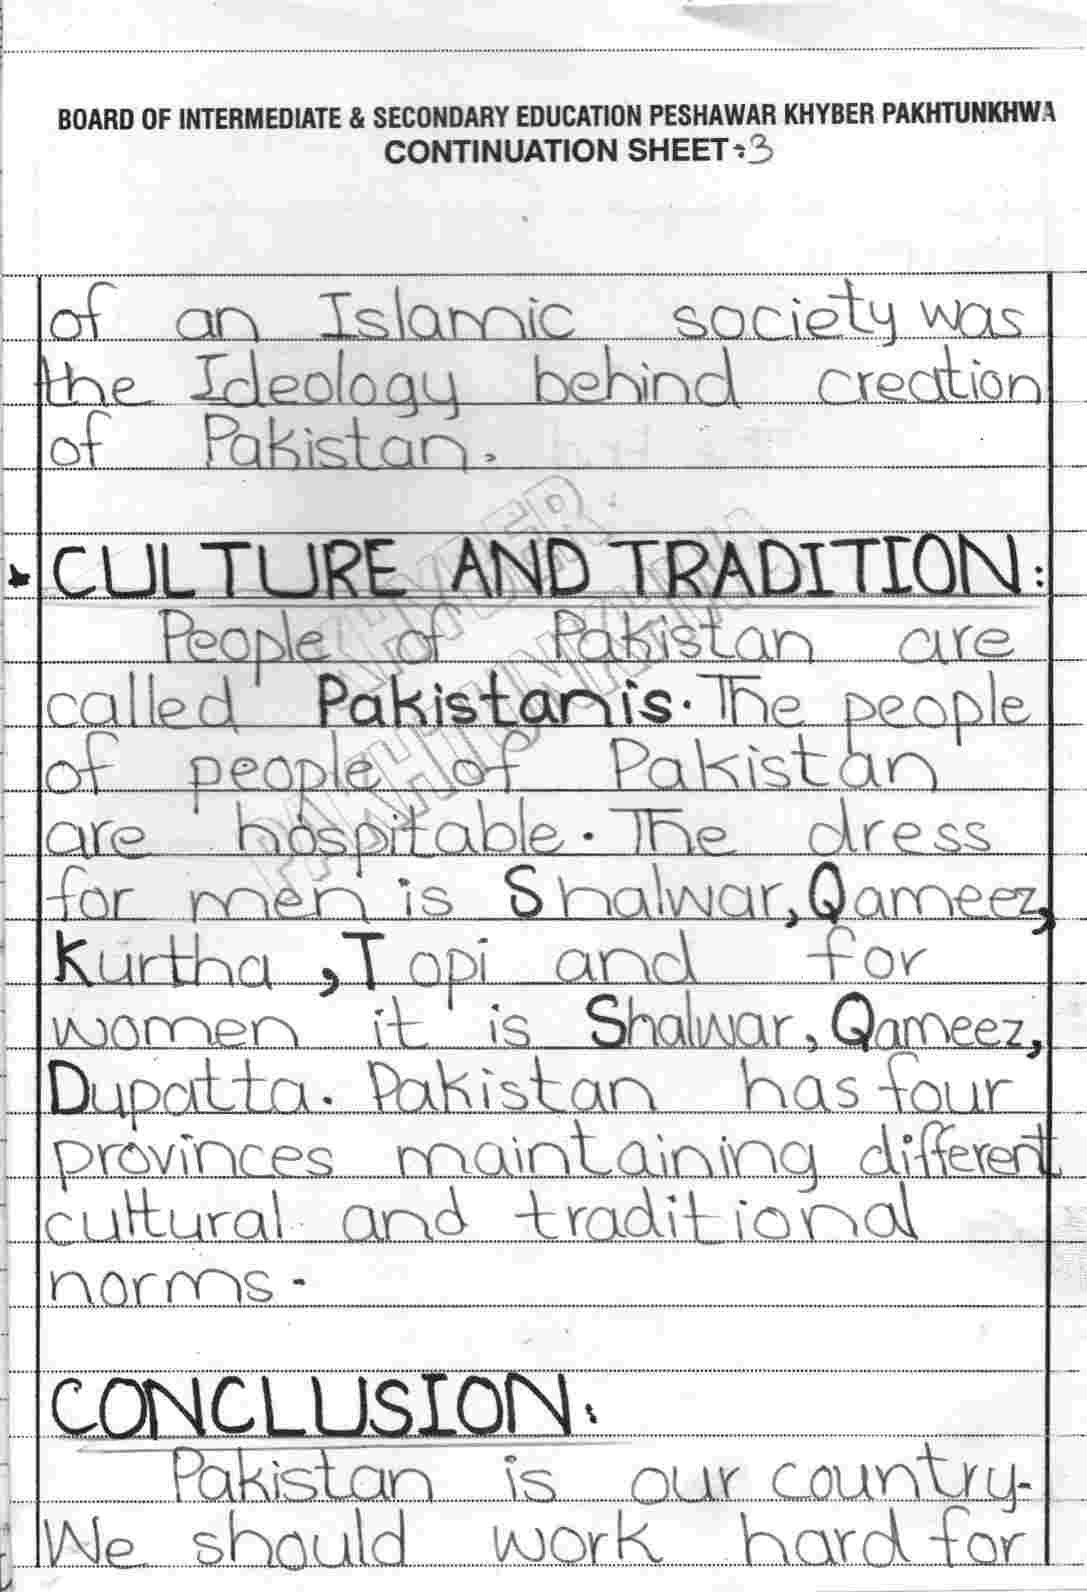 BOARD OF INTERMEDIATE & SECONDARY EDUCATION PESHAWAR KHYBER PAKHTUNKHWA
CONTINUATION SHEET:3
of an Islamic society was
the Ideology behind creation
of Pakistan.
CULTURE AND TRADITION:
People of Pakistan are
called Pakistanis. The people
of people of Pakistan
are hospitable. The dress
for men is Shalwar, Qameez,
Kurtha, Topi and for
women it is Shalwar, Qameez,
Dupatta. Pakistan has four
provinces maintaining different
cultural and traditional
norms.
CONCLUSION:
Pakistan is our country.
We should work hard for
KHYBER
PAKHTUNKHWA